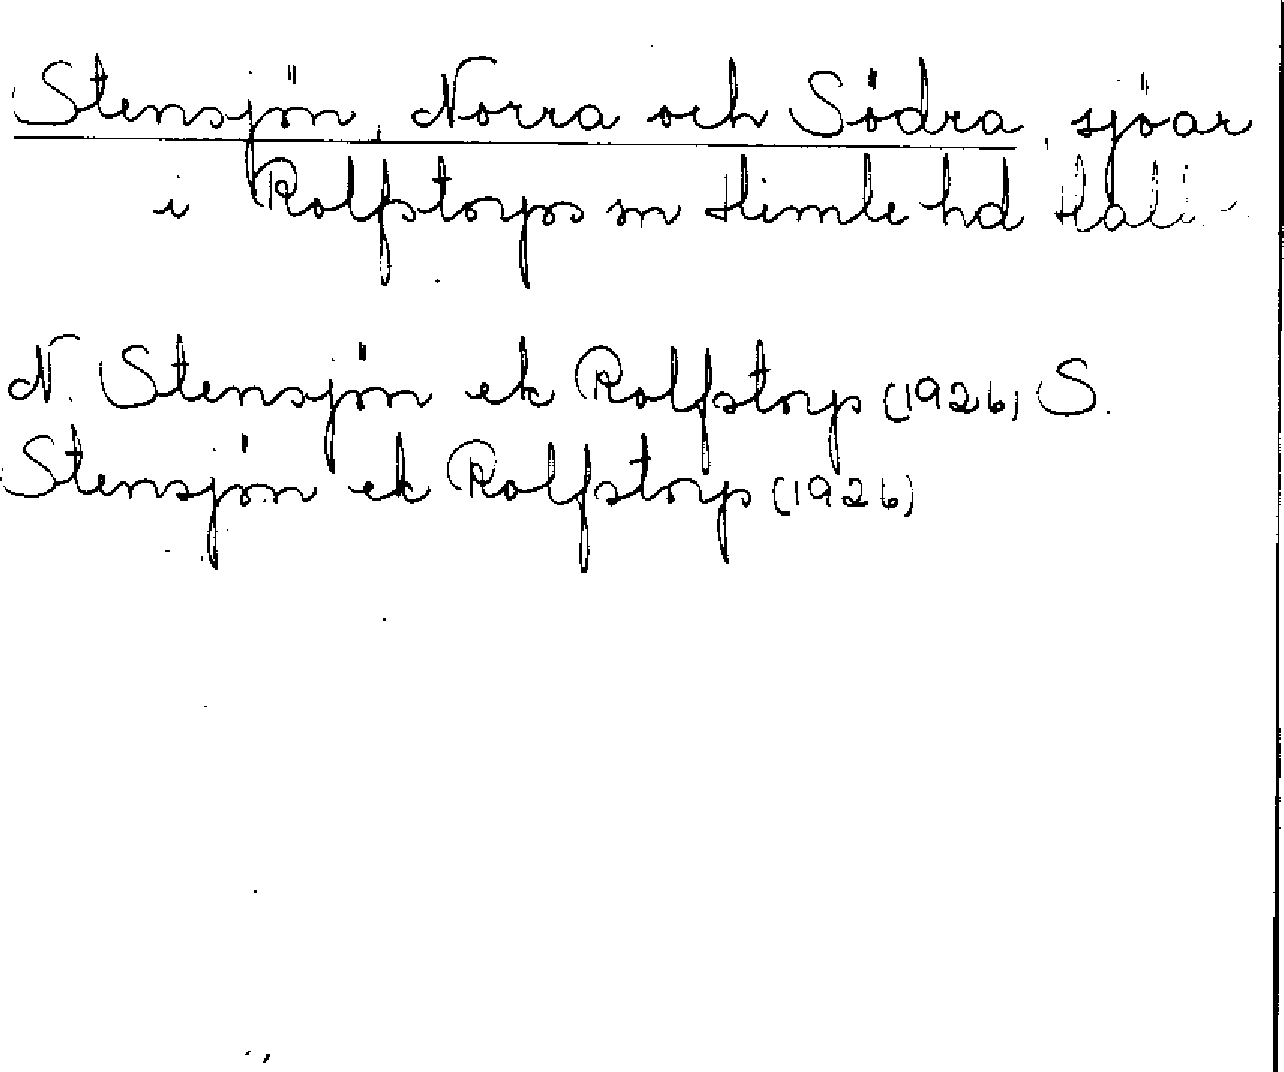 Stensjön, Norra och Södra, sjöar
i Rolfstorps sn Himle hd Hall
N. Stensjön ek Rolfstorp (1926) S.
Stensjön ek Rolfstorp (1926)